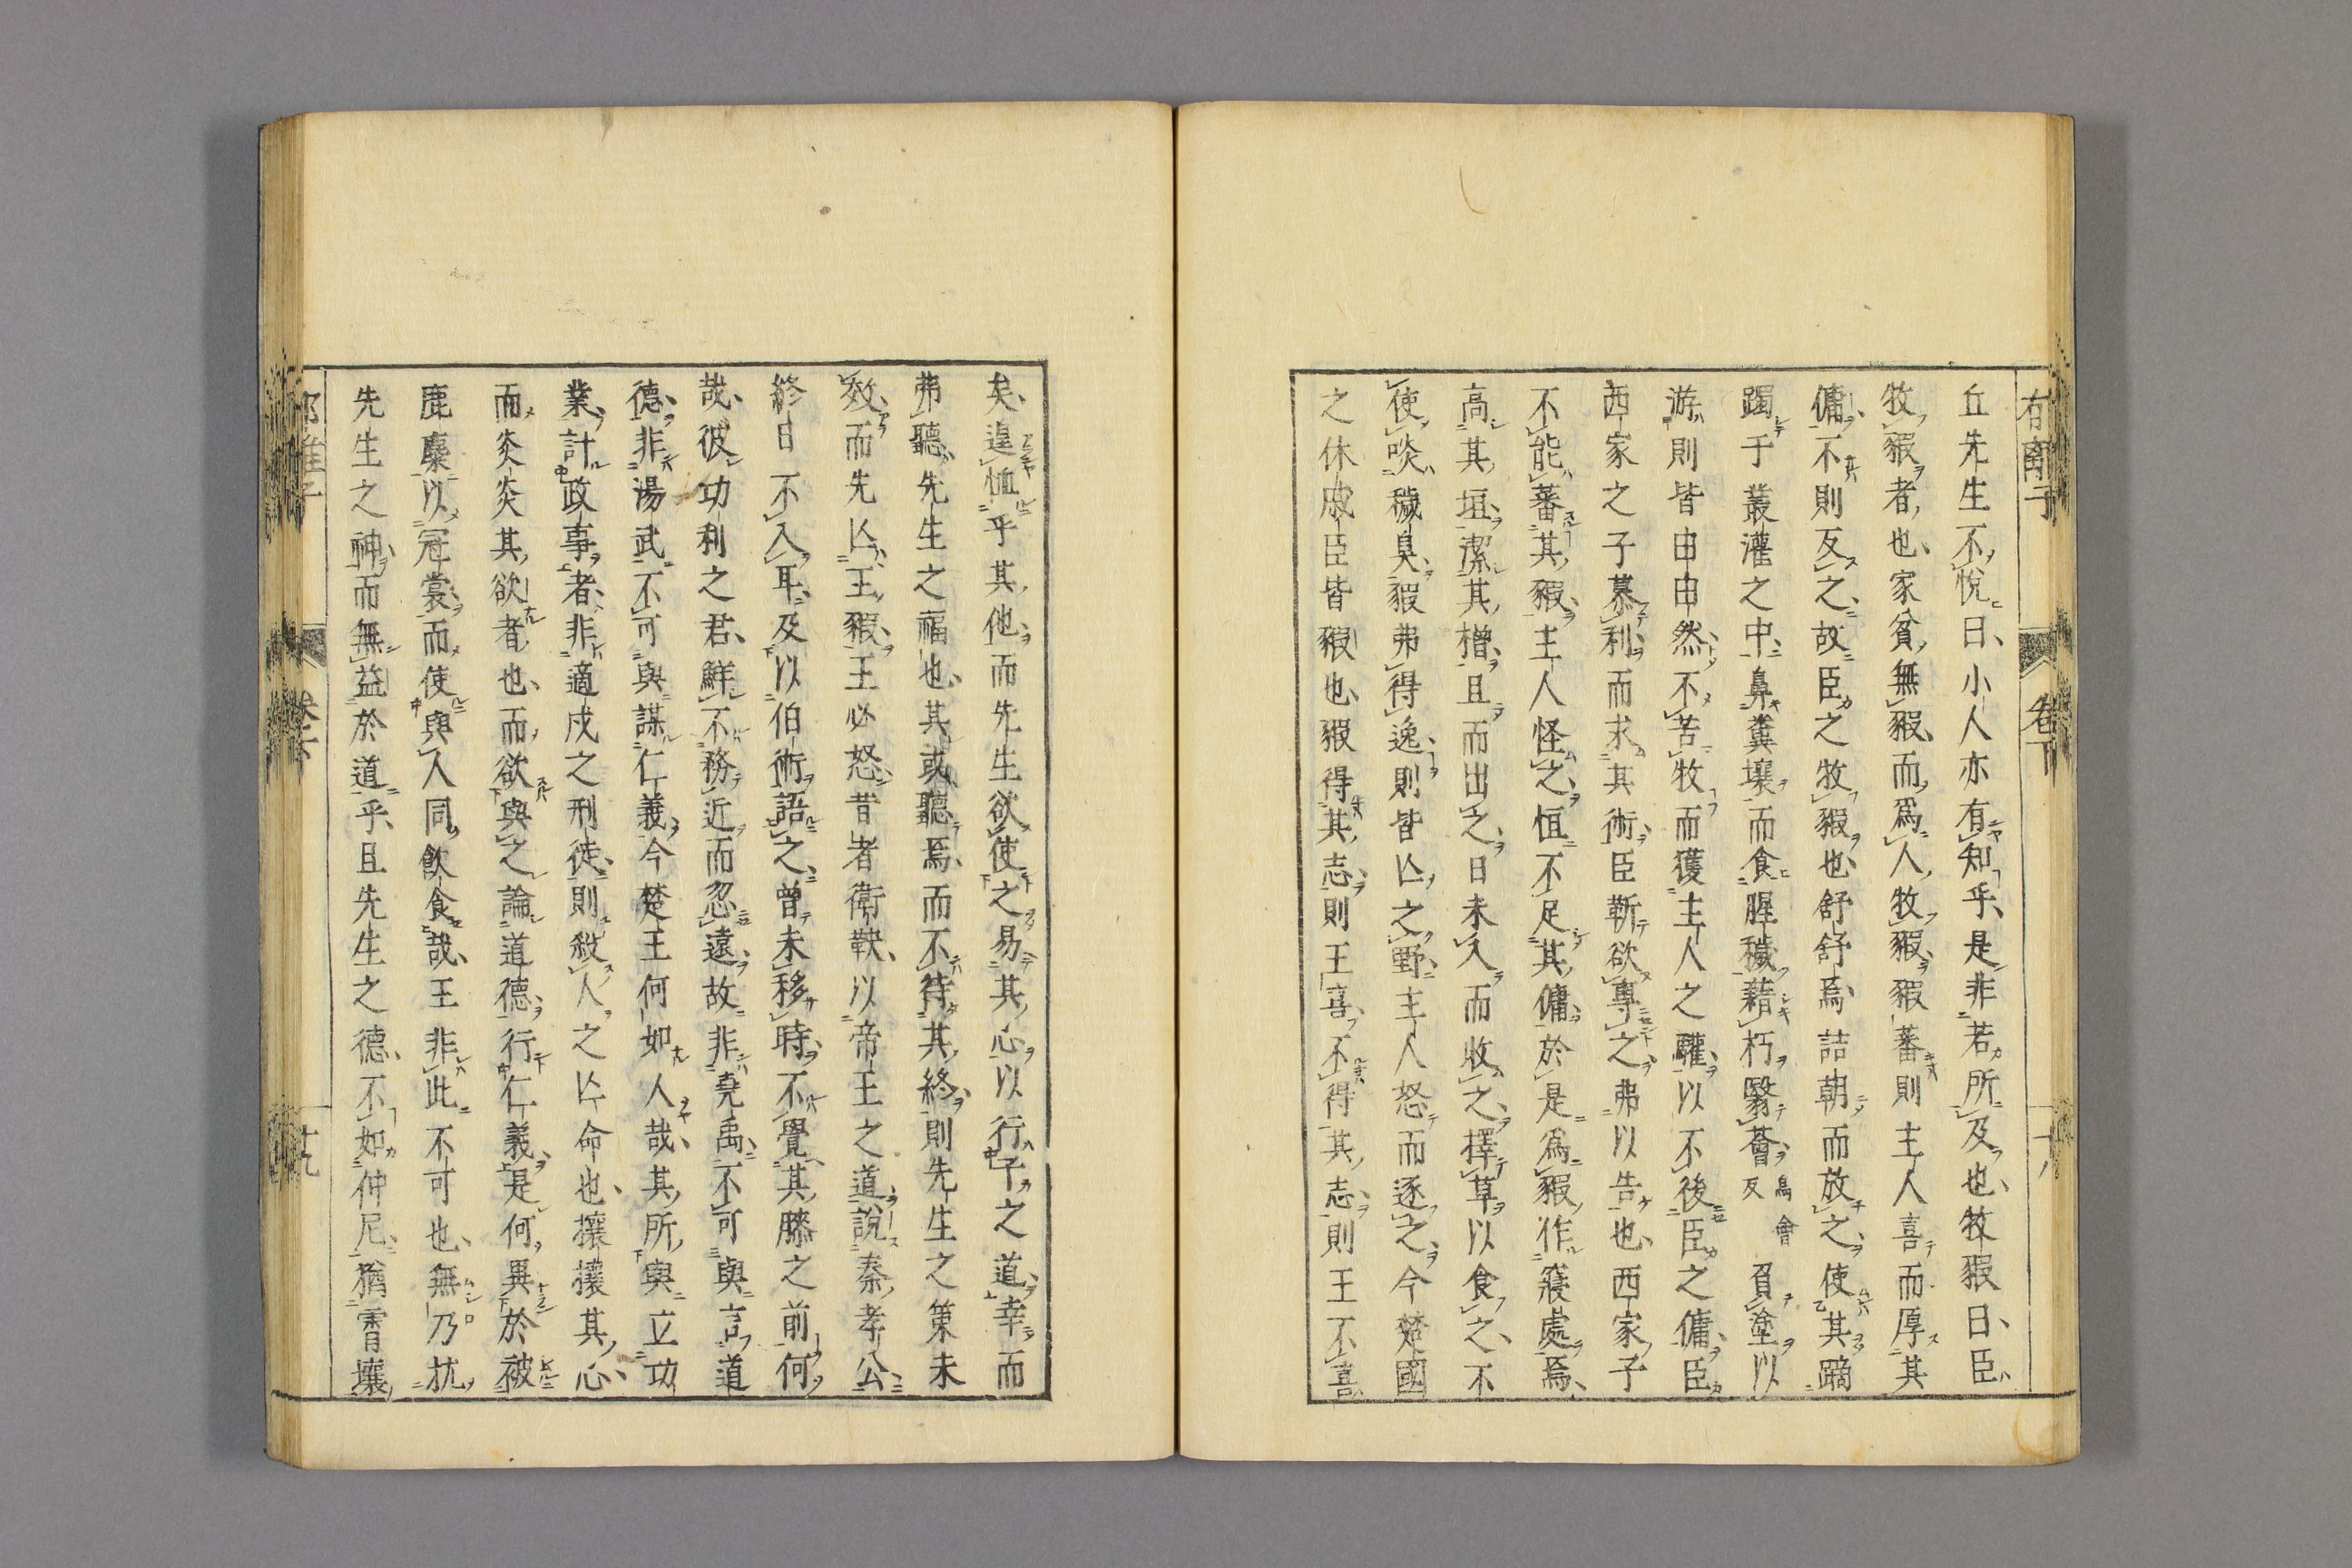 丘先生不悅曰小人亦有知乎是非若所及也牧豭曰臣
牧豭者也家貧無豭而爲人牧豭豭蕃則主人喜而厚其
傭不則反之故臣之牧豭也舒舒焉詰朝而放之使其蹢
躅于叢灌之中鼻糞壤而食腥穢藉朽翳薈烏會反負塗以
游則皆由由然不苦牧而獲主人之驩以不後臣之傭臣
西家之子慕利而求其術臣靳欲專之弗以告也西家子
不能蕃其豭主人怪之恒不足其傭於是爲豭作寢處焉
高其垣潔其橧且而出之日未入而收之擇草以食之不
使啖穢臭豭弗得逸則皆亾之野主人怒而逐之今楚國
之休戚臣皆豭也豭得其志則王喜不得其志則王不喜
卷下
矣遑恤乎其他而先生欲使之易其心以行子之道幸而
弗聽先生之福也其或聽焉而不待其終則先生之策未
效而先亾王豭王必怒昔者衛鞅以帝王之道說秦孝公
終日不入耳及以伯術語之曾未移時不覺其膝之前何
哉彼功利之君鮮不務近而忽遠故非堯禹不可與言道
德非湯武不可與謀仁義今楚王何如人哉其所與立功
業計政事者非適戍之刑徒則殺人之亾命也攘攘其心
而炎炎其欲者也而欲與之論道德行仁義是何異於被
鹿麋以冠裳而使與人同飲食哉王非此不可也無乃抗
先生之神而無益於道乎且先生之德不如仲尼猶霄壤